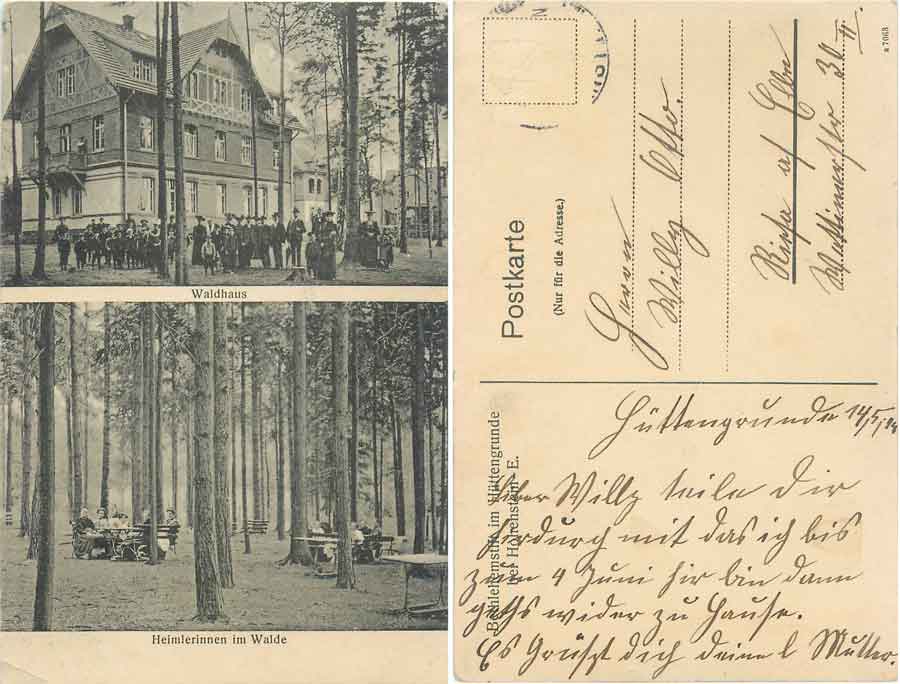 Waldhaus
Heimlerinnen im Walde
Postkarte
(Nur für die Adresse.)
Herrn
Willy Otto.
Riesa a/ Elbe
a 7063
Bethlehemstift im Hüttengrunde
bei Hohenstein-E.
Hüttengrunde 14/5
Lieber Willy teile dir
hirdurch mit das ich bis
zum 4 Juni hir bin dann
gehts wider zu Hause.
Es Grüßt dich deine l Mutter.